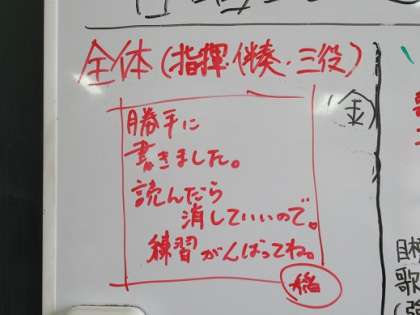 全体(指揮・伴奏・三役)
(金)
勝手に
書きました。
読んだら
消していいので。
練習がんばってね。
目標
歌